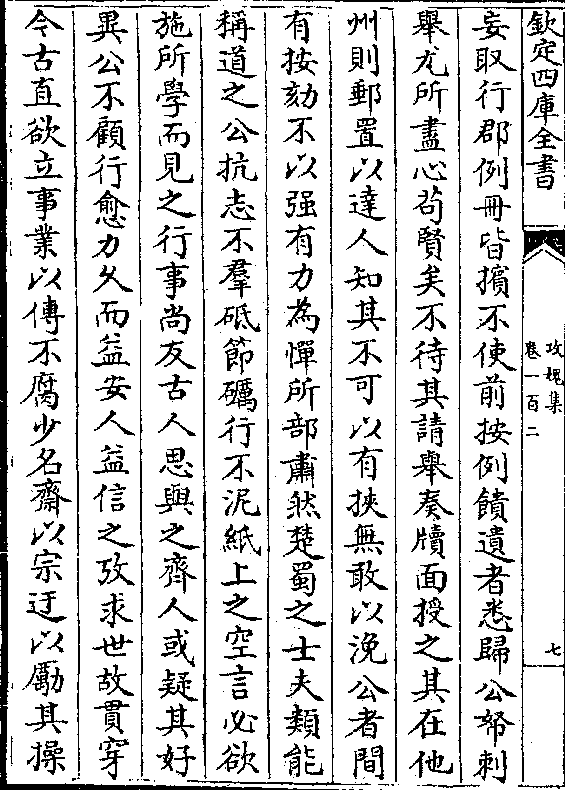 欽定四庫全書
攻媿集
卷一百二
七
妄取行郡例冊皆擯不使前按例饋遺者悉歸公帑刺
舉尤所盡心茍賢矣不待其請舉奏牘面授之其在他
州則郵置以達人知其不可以有挾無敢以浼公者間
有按劾不以强有力為憚所部肅然楚蜀之士夫類能
稱道之公抗志不羣砥節礪行不泥紙上之空言必欲
施所學而見之行事尚友古人思與之齊人或疑其好
異公不顧行愈力久而益安人益信之攷求世故貫穿
今古直欲立事業以傳不腐少名齋以宗迂以勵其操